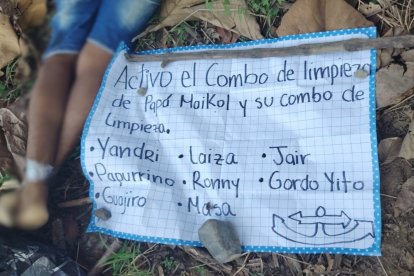 Activo el Combo de limpieza
de Papá Maikol y su combo de
limpieza.
• Yandri • Laiza • Jair
• Paqurrino • Ronny • Gordo Yito
• Guajiro • Masa